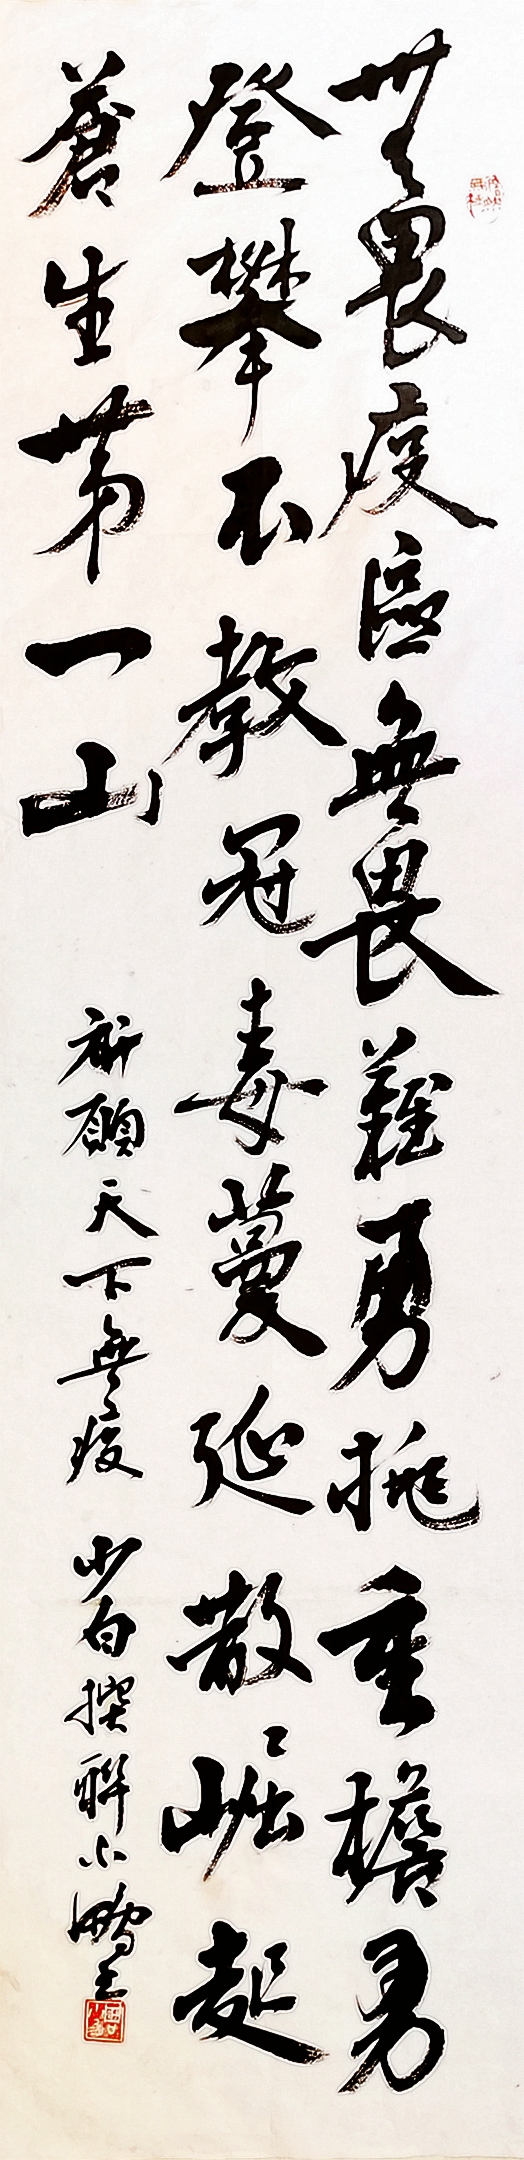 無畏疫區無畏難勇挑重擔勇
登攀不教冠毒蔓延散崛起
蒼生第一山
祈願天下無疫 少白撰聯小鵬書